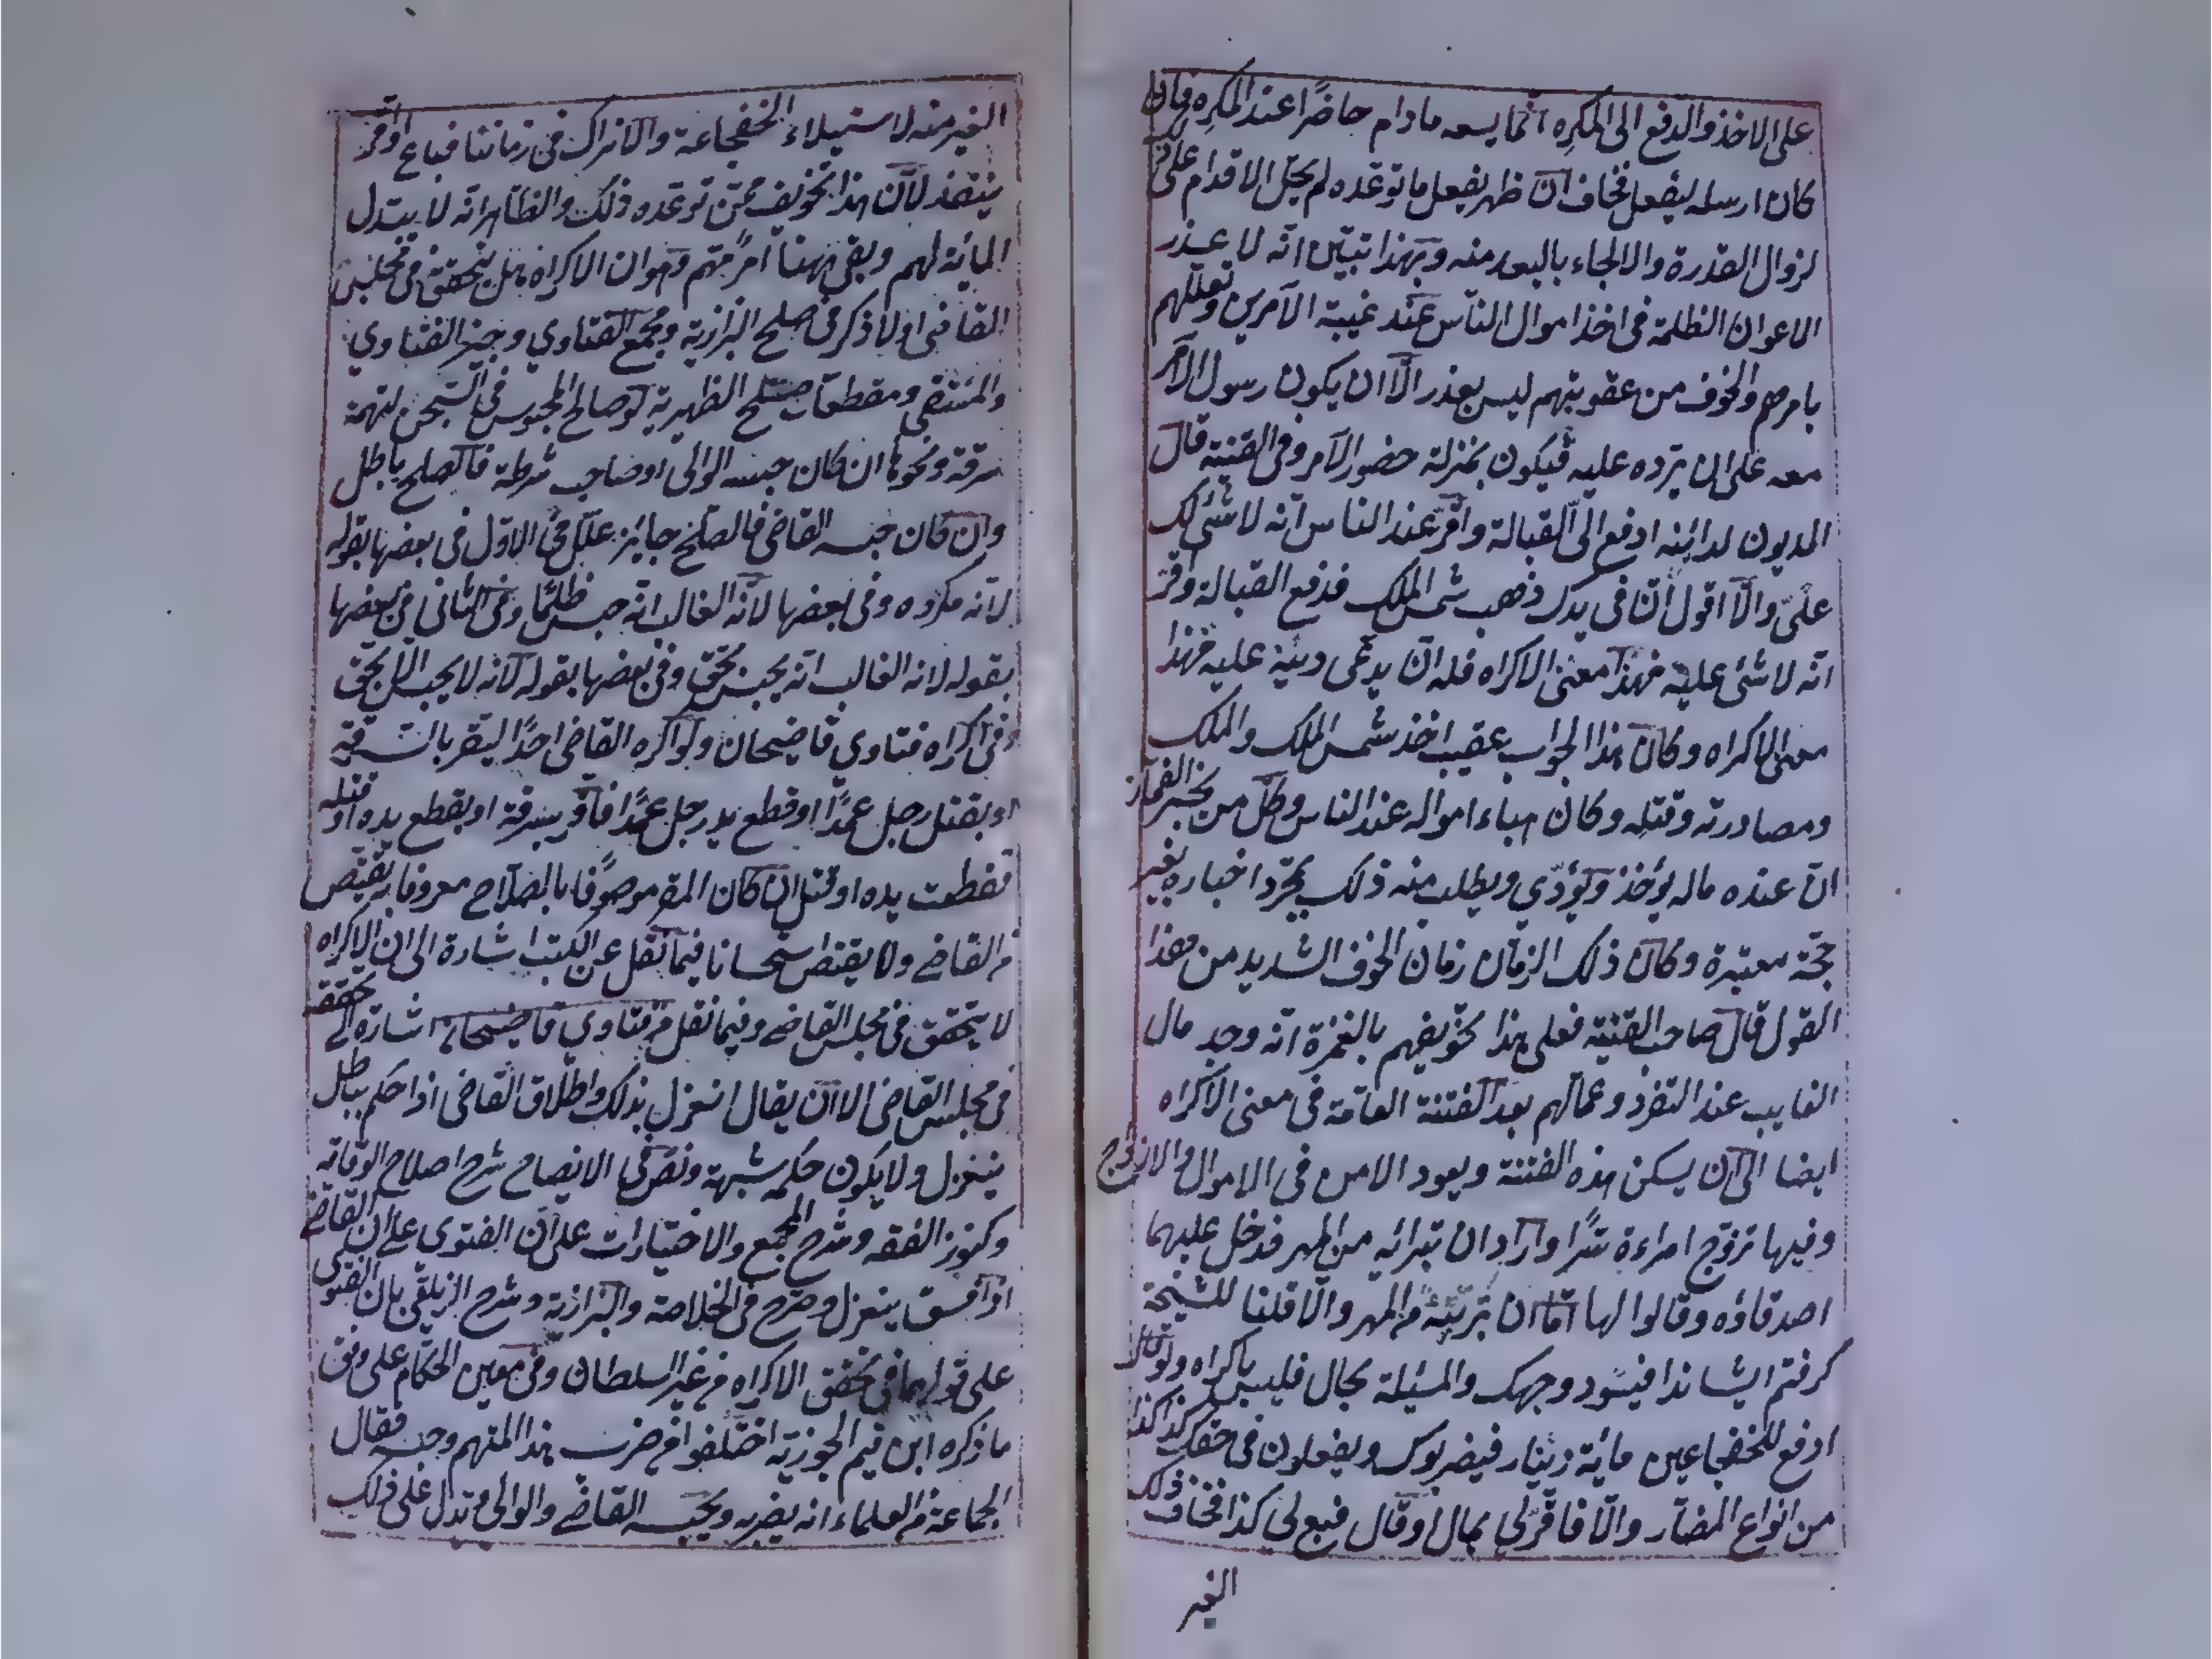 على الاخذ والدفع الى المكرِه انما يسعه مادام حاضرًا عند المكرِه فان
كان ارسله ليفعل فخاف ان ظهر يفعل ما توعده لم يحل الاقدام على ذلك
لزوال القدرة والالجاء بالبعد منه وبهذا تبيّن انه لا عذر
الاعوان الظلمة فى اخذ اموال الناس عند غيبة الآمرين وتعللهم
بامرهم والخوف من عقوبتهم ليس بعذر الّا ان يكون رسول الآمر
معه على ان يرده عليه فيكون بمنزلة حضور الآمر وفى القنية قال
المديون لدائنه ادفع الىّ القبالة واقرّ عند الناس انه لا شئ لك
علىّ والّا اقول ان فى يدك ذهب شمس الملك فدفع القبالة واقرّ
انّه لا شئ عليه فهذا معنى الاكراه فله ان يدعى دينه عليه فهذا
معنى الاكراه وكان هذا الجواب عقيب اخذ شمس الملك والملك
ومصادرته وقتله وكان هباء امواله عند الناس وكل من يخبر الغماز
ان عنده ماله يؤخذ ويؤذي ويطلب منه ذلك بمجرد اخباره بغير
حجّة معتبرة وكان ذلك الزمان زمان الخوف الشديد من هذا
القول قال صاحب القنية فعلى هذا تخويفهم بالغمزة انه وجد مال
الغايب عند التفرد وعمالهم بعد الفتنة العامّة فى معنى الاكراه
ايضا الى ان يسكن هذه الفتنة ويعود الامن فى الاموال والازواج
وفيها تزوّج امراءة سرًا واراد ان تبرائه من المهر فدخل عليهما
اصدقاؤه وقالوا لها امّا ان تبرئيه من المهر والّا قلنا للشيخة
كرفتم ايشانذا فيسود وجهك والمسئلة بحال فليس باكراه ولو قال
ادفع للخفجاعين مائة دينار فيضربوك ويفعلون فى حقك كذا كذا
من انواع المضار والّا فاقرّ لى بمال او قال فبع لى كذا فخاف ذلك
الغير
الغير منه لاستيلاء الخفجاعة والاتراك فى زماننا فباع او اقر
ينفذ لان هذا تخويف ممّن توعده ذلك والظاهر انه لا يبتدل
المائة لهم وبقى ههنا امر مهم وهو ان الاكراه هل يتحقق فى مجلس
القاضى او لا ذكر فى صلح البزازية ومجمع الفتاوي وجيز الفتاوي
والمنتقى ومقطعات صلح الظهيرية لو صالح المحبوس فى السجن لتهمة
سرقة ونحوها ان كان حبسه الوالى او صاحب شرطة فالصلح باطل
وان كان حبسه القاضى فالصلح جايز علل فى الاوّل فى بعضها بقوله
لانه مكروه وفى بعضها لان الغالب انه حبس ظلمًا وفى الثانى فى بعضها
بقوله لانه الغالب انه يحبس بحق وفى بعضها بقوله لانه لا يحبس الّا بحق
وفى اكراه فتاوي قاضيخان ولو اكره القاضى احدًا ليقر بالسرقة
او بقتل رجل عمدًا او قطع يد رجل عمدًا فاقر بسرقة او بقطع يده او قتله
فقطعت يده او قتل ان كان المقر موصوفًا بالصلاح معروفا به يقتص
من القاضى ولا يقتص استحسانا فيما نقل عن الكتب اشارة الى ان الاكراه
لا يتحقق فى مجلس القاضى وفيما نقل من فتاوي قاضيخان اشارة الى تحققه
فى مجلس القاضى الا ان يقال انعزل بذلك واطلاق القاضى اذا حكم بباطل
ينعزل ولا يكون حكمه شبهة ونص فى الايضاح شرح اصلاح الوقاية
وكنوز الفقه وشرح المجمع والاختيارات على ان الفتوى على ان القاضى
اذا فسق ينعزل وصرح فى الخلاصة والبزازية وشرح الزيلقى بان الفتوى
على قولهما فى تحقق الاكراه من غير السلطان وفى معين الحكّام على وفق
ما ذكره ابن قيم الجوزية اختلفوا فى ضرب هذا المتهم وحبسه فقال
الجماعة من العلماء انه يضربه ويحبسه القاضى والوالى وتدل على ذلك